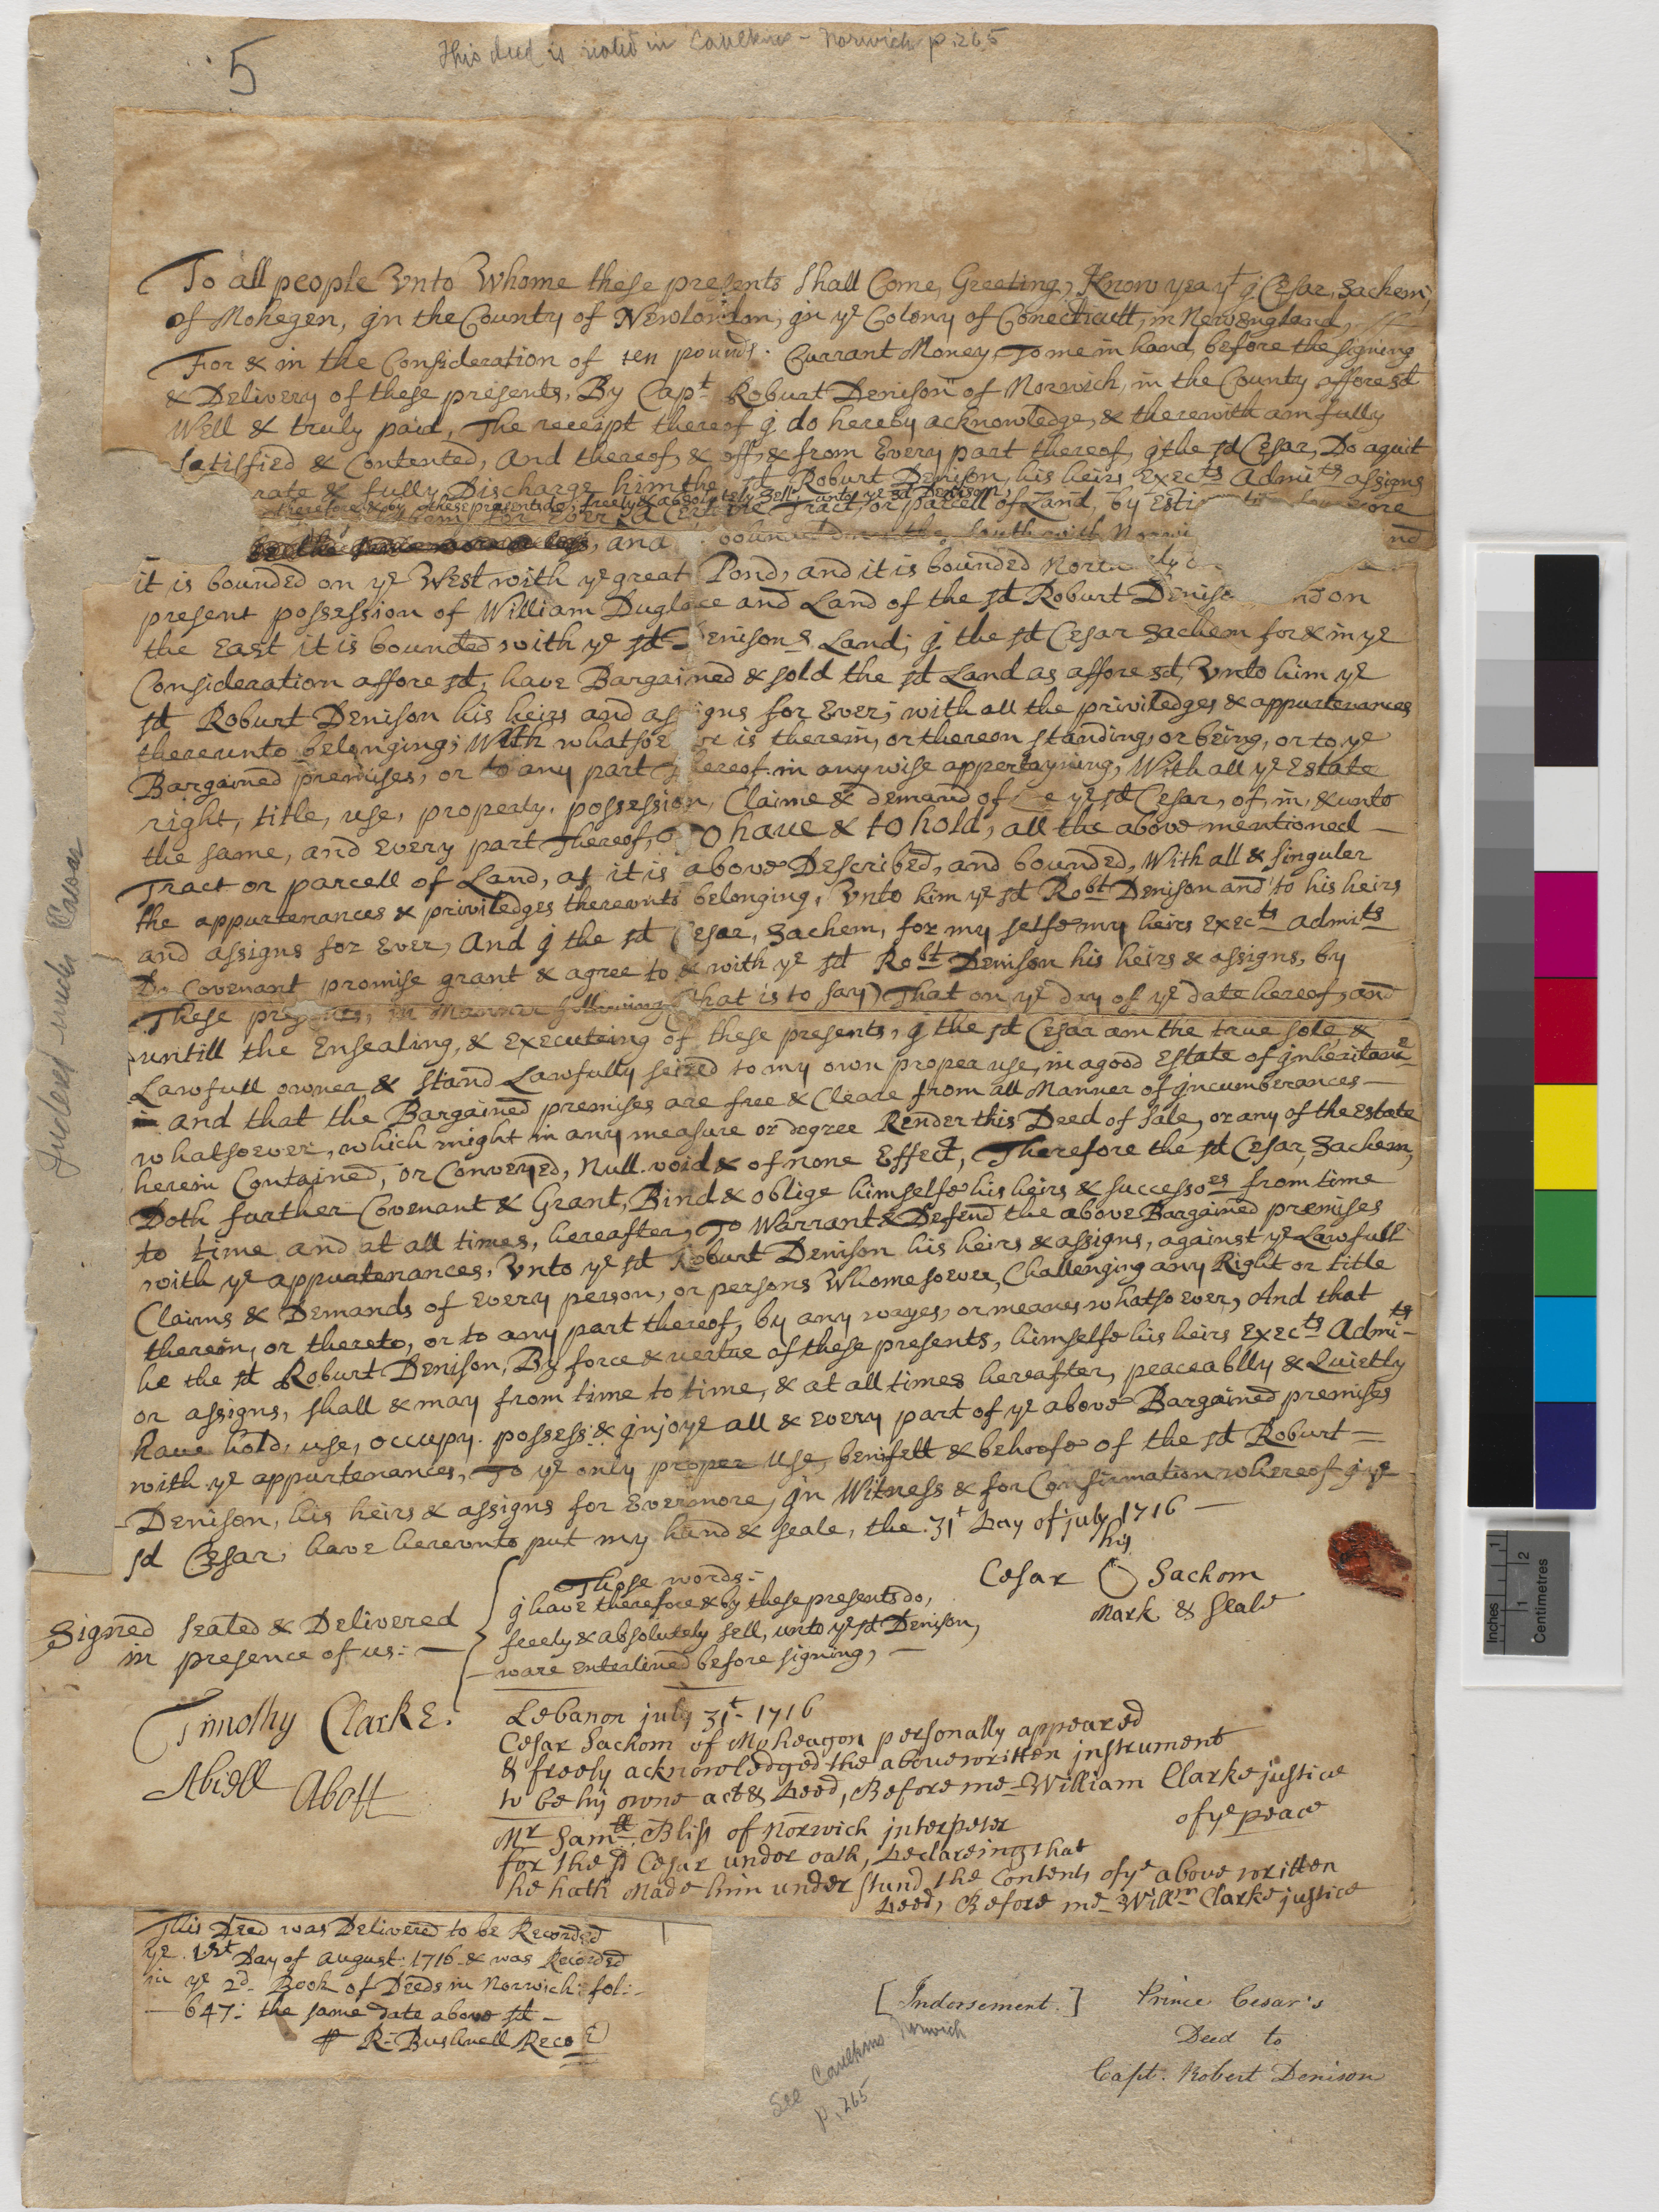 5
This deed is noted in Caulkins - Norwich p. 265
To all people Vnto Whome these presents Shall Come, Greeting, Know yea yt j Cesar, Sachem,
of Mohegen, jn the County of Newlondon, jn ye Colony of Conecticutt, in NewEngland,
For & in the Consideration of ten pounds. Currant Money, To me in hand, before the signing
& Delivery of these presents, By Capt Roburt Denison of Norwich, in the County afforesd
Well & truly paid, The receipt thereof j do hereby acknowledge, & therewith am fully
satisfied & Contented, And thereof, & off, & from Every part thereof, j the sd Cesar, Do aquit
rate & fully Discharge him the sd Roburt Denison, his heirs Exects Admits assigns
therefore & by these presents do, freely & absolutely Sell, unto ye sd Denison;
for Ever, a Certaine Tract, or parcell of Land, by Esti
, and bound the South with Norwi nd
it is bounded on ye West with ye great Pond, and it is bounded
present possession of William Duglace and Land of the sd Roburt Deniso nd on
the East it is bounded with ye sd Denisons Land; j the sd Cesar Sachem for & in ye
Consideration affore sd, have Bargained & sold the sd Land as affore sd, Vnto him ye
sd Roburt Denison his heirs and assigns for Ever; with all the priviledges & appurtenances
thereunto belonging; With whatsoe er is therein, or thereon standing, or being, or to ye
Bargained premises, or to any part thereof in anywise appertayning, With all ye Estate
right, title, use, property, possession, Claime & demand of me ye sd Cesar, of, in, & unto
the same, and Every part Thereof, To haue & to hold, all the above mentioned —
Tract or parcell of Land, as it is above Described, and bounded, With all & singuler
the appurtenances & priviledges thereunto belonging, Vnto him ye sd Robt Denison and to his heirs
and assigns for Ever, And j the sd Cesar, Sachem, for my selfe my heirs Exects Admits
Do Covenant promise grant & agree to & with ye sd Robt Denison his heirs & assigns, by
These presents, in Manner following (That is to say) That on ye day of ye date hereof, and
untill the Ensealing, & Executeing of these presents, j the sd Cesar am the true sole, &
Lawfull owner, & stand Lawfully seized to my own proper use, in a good Estate of jnheritance
and that the Bargained premises are free & Cleare from all Manner of jncumberances —
whatsoever, which might in any measure or degree Render this Deed of Sale, or any of the Estate
herein Contained, or Conveyed, Null void & of none Effect, Therefore the sd Cesar, Sachem,
Doth further Covenant & Grant, Bind & oblige himselfe his heirs & successors from time
to time and at all times, hereafter, To Warrant & Defend the above Bargained premises
with ye appurtenances, Vnto ye sd Roburt Denison his heirs & assigns, against ye Lawfull
Claims & Demands of Every person, or persons Whomesoever, Challenging any Right or title
therein, or thereto, or to any part thereof, by any wayes, or meanes whatsoever, And that
he the sd Roburt Denison, By force & vertue of these presents, himselfe his heirs Execs Admits
or assigns, shall & may from time to time, & at all times hereafter, peaceablly & Quietly
have hold, use, occupy, possess & jnjoye all & every part of ye above Bargained premises
with ye appurtenances, To ye only proper use, benifett & behoofe of the sd Roburt =
Denison, his heirs & assigns for Evermore, jn Witness & for Confirmation whereof j ye
sd Cesar, have hereunto put my hand & seale, the 31t Day of july 1716 —
his
Cesar O Sachom
Mark & Seale
Those words:-
j have therefore & by these presents do,
freely & absolutely sell, unto ye sd Denison,
ware enterlined before signing, —
Signed sealed & Delivered
in presence of us: —
Timothy Clarke.
Abiell Abott
Lebanon july 31t 1716
Cesar Sachom of Moheagon personally appeared
& freely acknowledged the above written instrument
to be his owne act & Deed, Before me William Clarke justice
of ye peace
Mr Samll Bliss of Norwich interpeter
for the sd Cesar under oath, Declareing that
he hath Made him under stund the Contents of ye above written
Deed, Before me Willm Clarke justice
This Deed was Delivered to be Recorded
ye 1st Day of August: 1716 & was Recorded
in ye 2d Book of Deeds in Norwich: fol:
— 647: the same Date above sd —
R: Bushnell Recor
[Indorsement.] Prince Cesar's
Deed to
Capt. Robert Denison
See Caulkins Norwich
p. 265
Indexed under Caesar